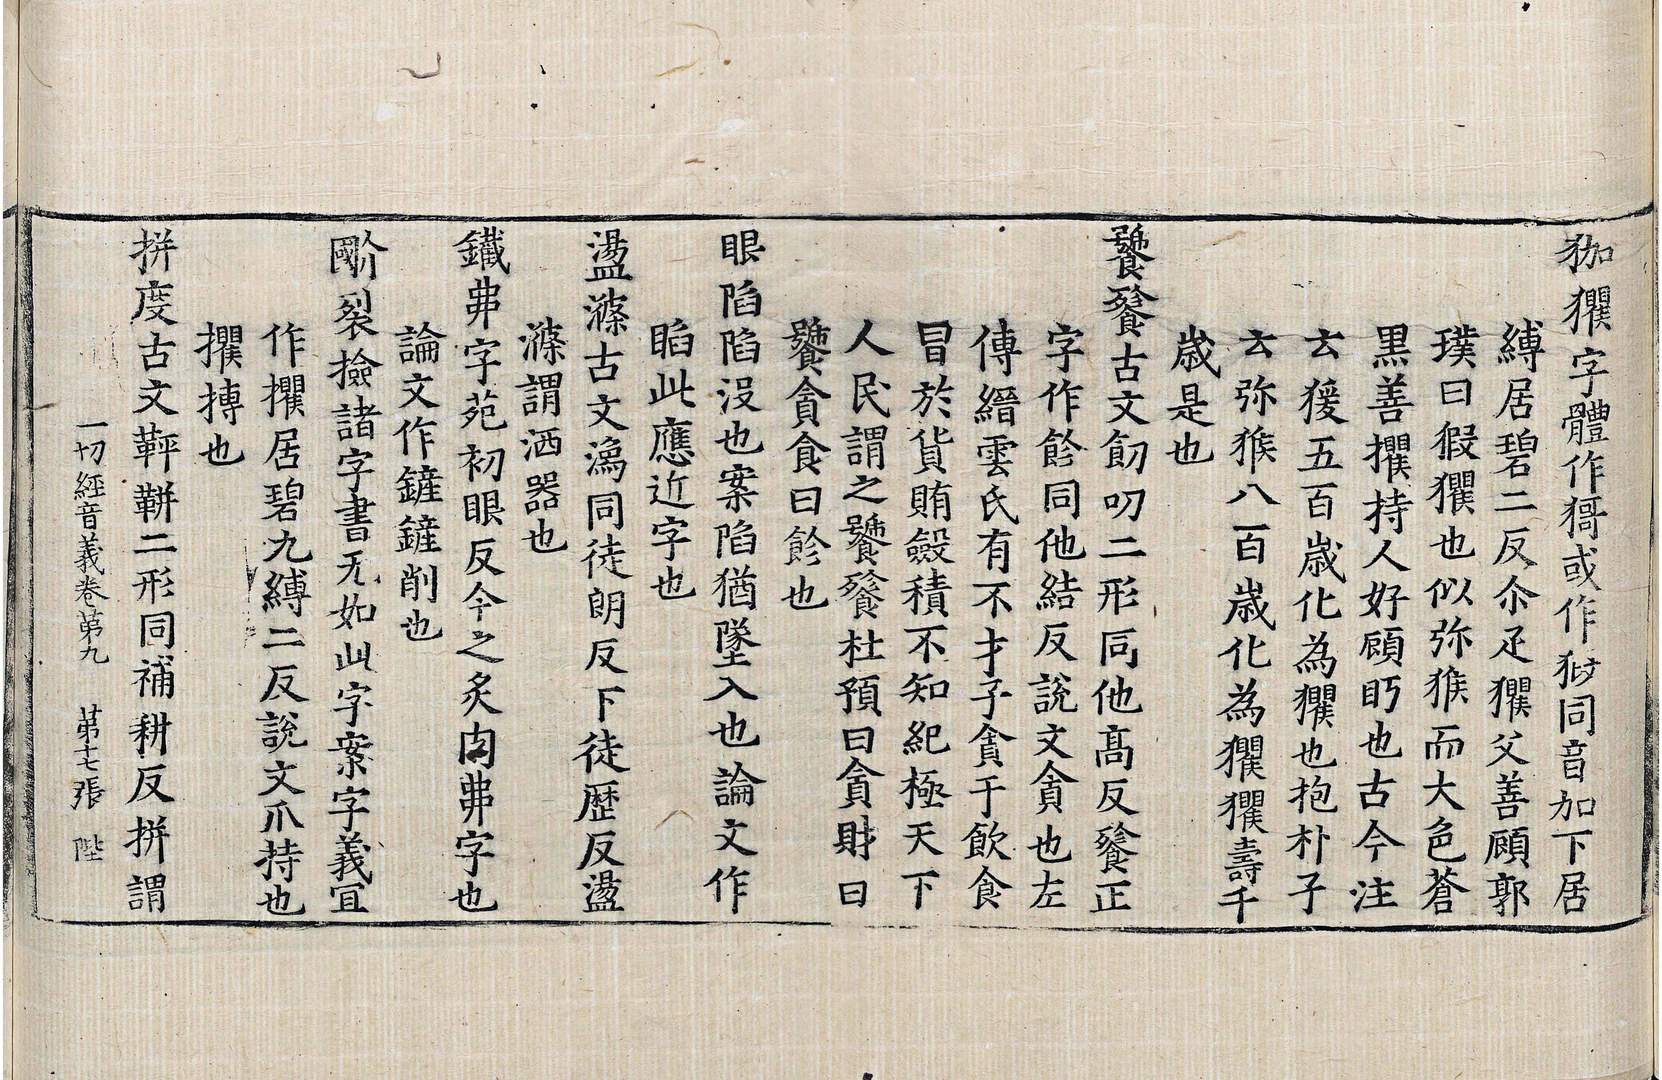 狖玃字體作𤠙或作㺒同音加下居
縛居碧二反尒疋玃父善顧郭
璞曰猳玃也似弥猴而大色蒼
黒善攫持人好顧眄也古今注
云猨五百歳化為玃也抱朴子
云弥猴八百歳化為玃玃壽千
歳是也
饕餮古文飻叨二形同他髙反餮正
字作飻同他結反說文貪也左
傳縉雲氏有不才子貪于飲食
冒於貨賄斂積不知紀極天下
人民謂之饕餮杜預曰貪財曰
饕貪食曰飻也
眼陷陷沒也案陷猶墜入也論文作
䀫此應近字也
盪滌古文潒同徒朗反下徒歴反盪
滌謂洒器也
鐵弗字苑初眼反今之炙肉弗字也
論文作鏟鏟削也
𠠎裂撿諸字書无如此字案字義冝
作攫居碧九縛二反說文爪持也
攫搏也
拼度古文𩊖𩋂二形同補耕反拼謂
一切經音義卷苐九 苐十七張 陛